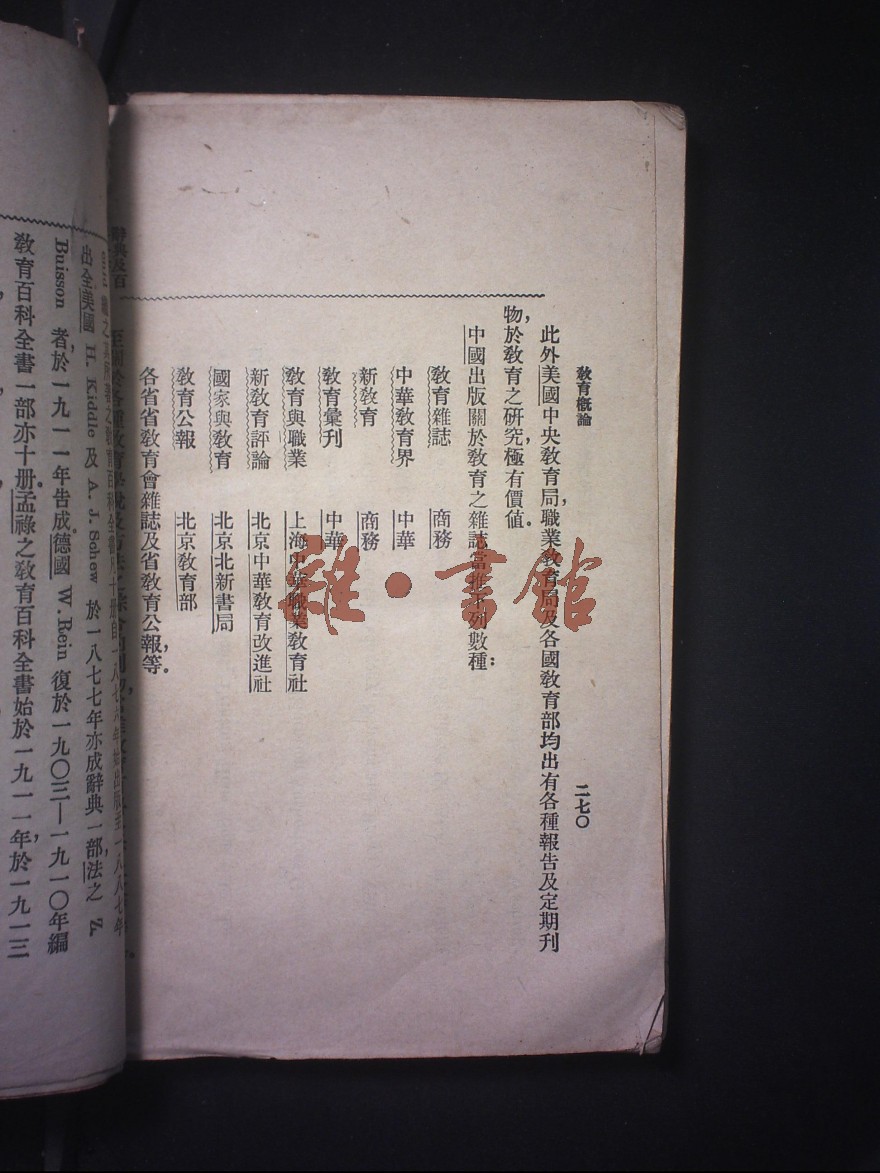 教育概論
二七〇
此外美國中央教育局，職業教育局及各國教育部均出有各種報告及定期刊
物，於教育之研究，極有價値。
中國出版關於教育之雜誌當推下列數種：
教育雜誌　商務
中華教育界　中華
新教育　商務
教育彙刊　中華
教育與職業　上海中華職業教育社
新教育評論　北京中華教育改進社
國家與教育　北京北新書局
教育公報　北京教育部
各省省教育會雜誌及省教育公報等。
辭典及百
至關於各種教育
出全美國 H. Kiddle 及 A. J. Schew 於一八七七年亦成辭典一部，法之 Z.
Buisson 者，於一九一一年告成。德國 W. Rein 復於一九〇三—一九一〇年編
教育百科全書一部亦十册。孟祿之教育百科全書始於一九一一年，於一九一三
雜·書館